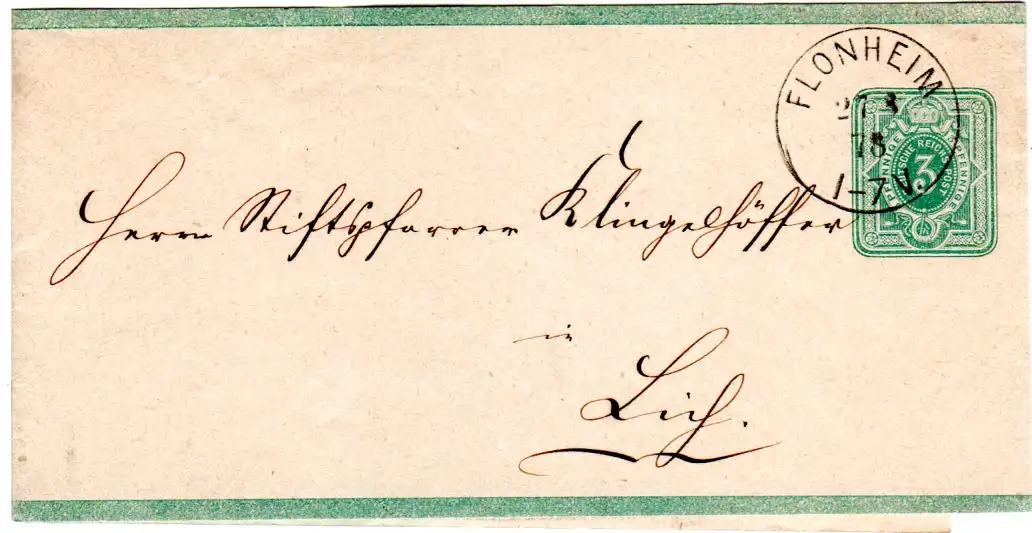 FLONHEIM
27 3
78
1-7 V.
PFENNIGE
DEUTSCHE REICHSPOST
3
PFENNIGE
Herrn Stiftspfarrer Klingelhöffer
in
Lich.